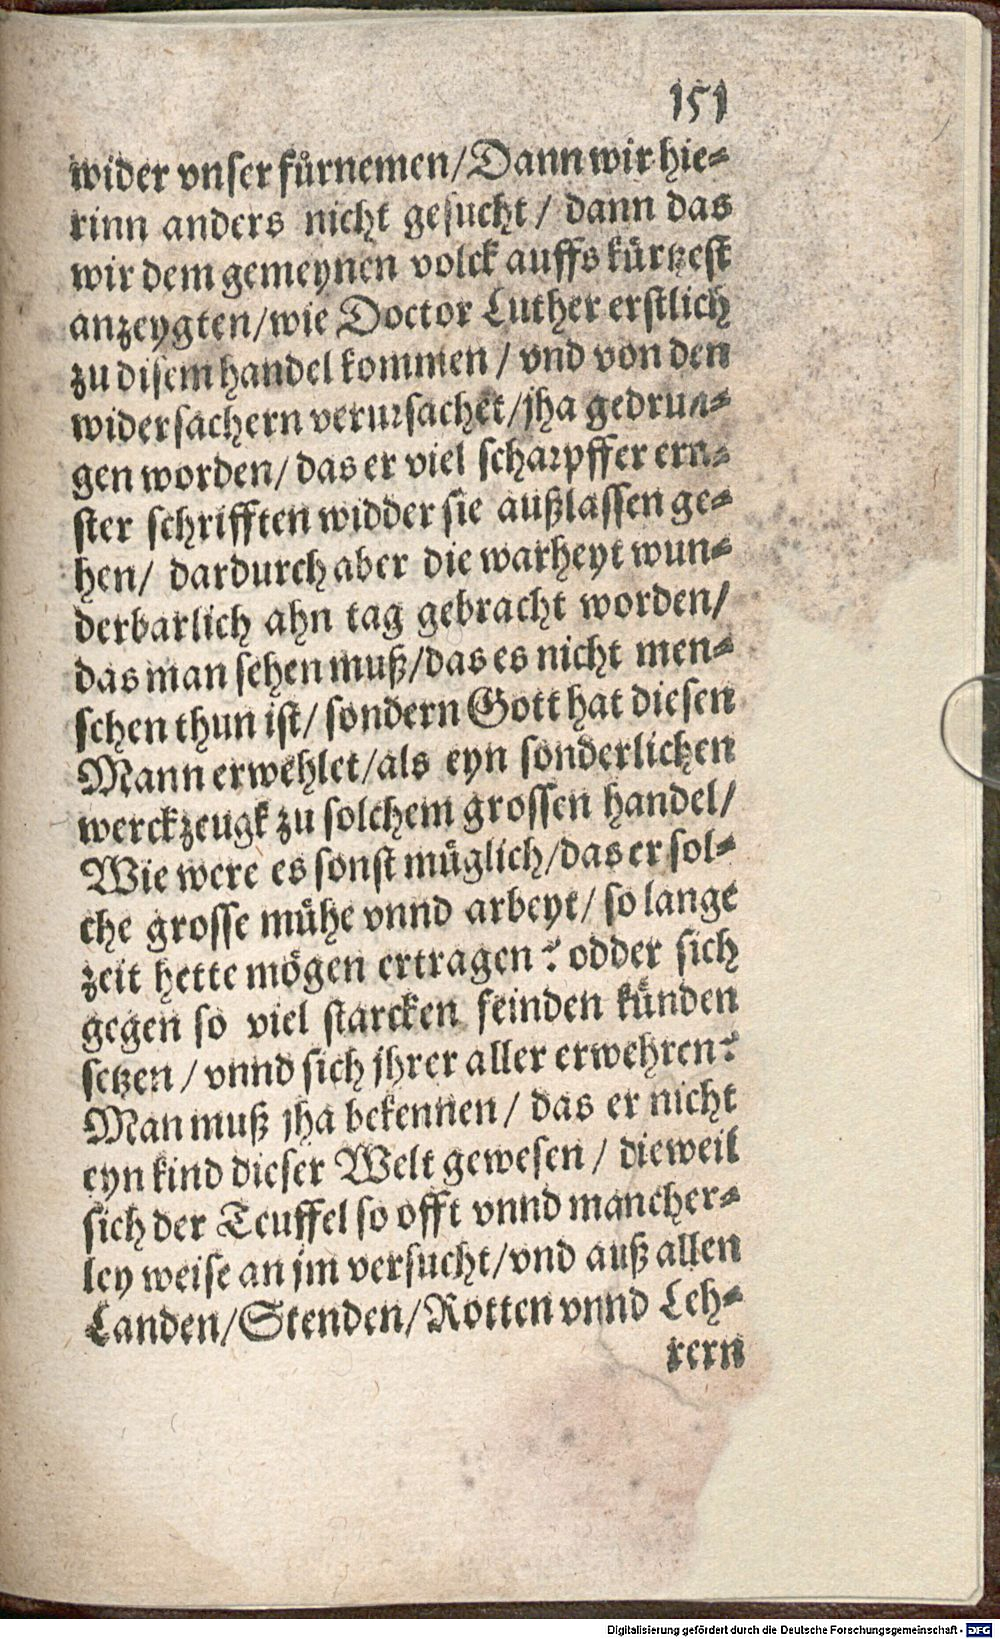 151
wider vnser fürnemen/Dann wir hie-
rinn anders nicht gesucht/ dann das
wir dem gemeynen volck auffs kürtzest
anzeygten/wie Doctor Luther erstlich
zu disem handel kommen/ vnd von den
widersachern verursachet/jha gedrun-
gen worden/ das er viel scharpffer ern-
ster schrifften widder sie außlassen ge-
hen/ dardurch aber die warheyt wun-
derbarlich ahn tag gebracht worden/
das man sehen muß/das es nicht men-
schen thun ist/ sondern Gott hat diesen
Mann erwehlet/als eyn sonderlichen
werckzeugk zu solchem grossen handel/
Wie were es sonst müglich/das er sol-
che grosse mühe vnnd arbeyt/ so lange
zeit hette mögen ertragen? odder sich
gegen so viel starcken feinden künden
setzen/ vnnd sich jhrer aller erwehren?
Man muß jha bekennen/ das er nicht
eyn kind dieser Welt gewesen/ dieweil
sich der Teuffel so offt vnnd mancher-
ley weise an jm versucht/vnd auß allen
Landen/Stenden/Rotten vnnd Leh-
rern
Digitalisierung gefördert durch die Deutsche Forschungsgemeinschaft - DFG